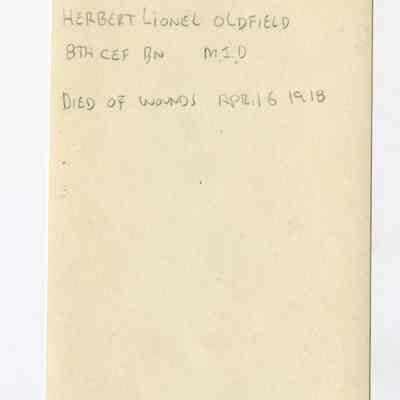 HERBERT LIONEL OLDFIELD
8TH CEF BN M.I.D
DIED OF WOUNDS APRIL 6 1918